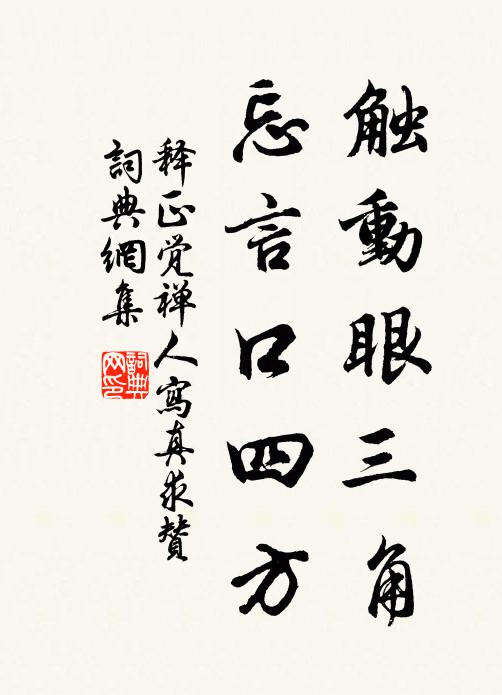 触動眼三角
忘言口四方
释正觉禅人寫真求賛
詞典網集
詞典網印